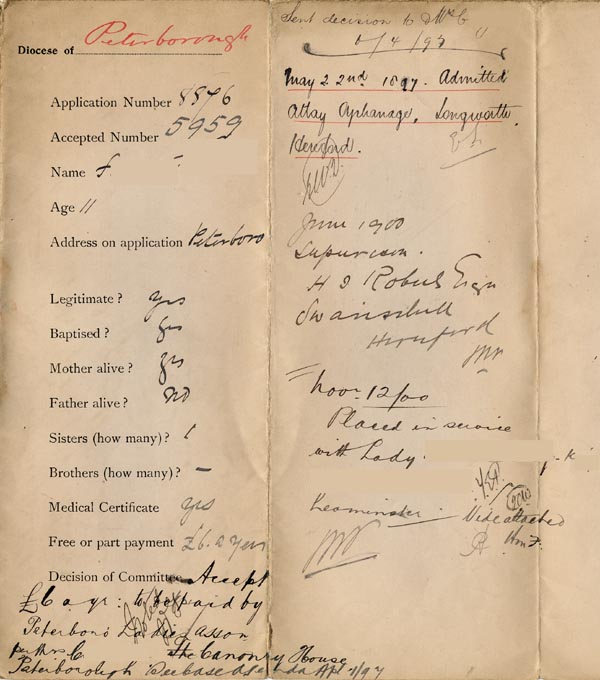 Diocese of Peterborough
Application Number 8876
Accepted Number 5959
Name F
Age 11
Address on application Peterboro
Legitimate? yes
Baptised? yes
Mother alive? yes
Father alive? no
Sisters (how many)? 1
Brothers (how many)? –
Medical Certificate yes
Free or part payment £6. a year
Decision of Committee Accept
£6 a yr: to be paid by
Peterboro Ladies Asson
per Mrs C The Canonry House
Peterborough
Apl 1/97
Sent decision to Mrs C
/4/97
May 22nd 1897. Admitted
Orphanage,
Hereford.
June 1900
Supervision.
H Esqr
Hereford
Novr 12/00
Placed in service
with Lady
Leominster. Vide attached